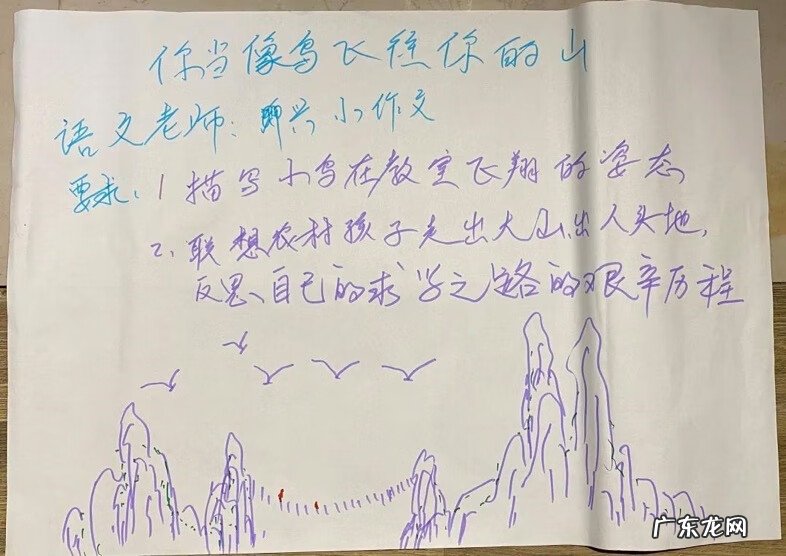 你当像鸟飞往你的山
语文老师:即兴小作文
要求:1描写小鸟在教室飞翔的姿态
2、联想农村孩子走出大山出人头地,
反思自己的求学之路的艰辛历程
广东龙网